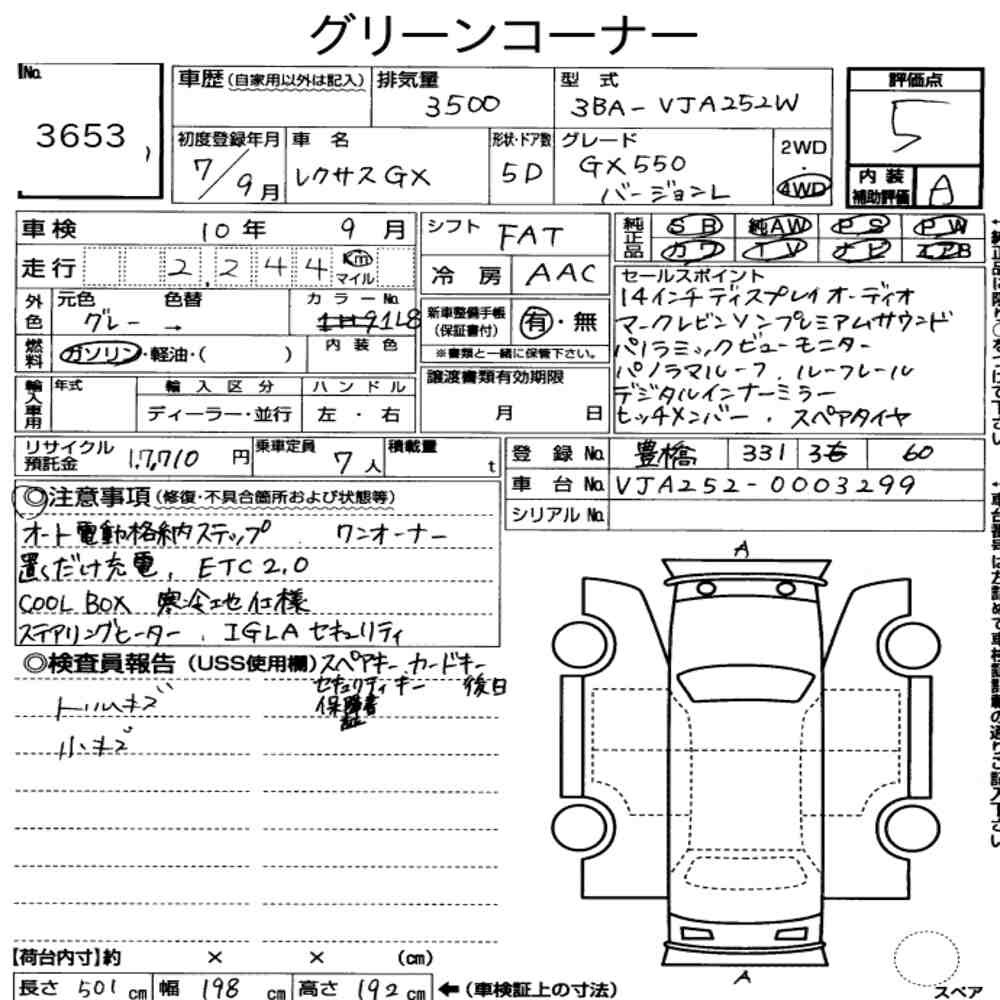 グリーンコーナー
No. 3653
車歴(自家用以外は記入)
排気量 3500
型式 3BA-VJA252W
評価点 5
初度登録年月 7/9月
車名 レクサスGX
形状・ドア数 5D
グレード GX550 バージョンL
2WD・4WD
内装補助評価 A
車検 10年 9月
シフト FAT
純正品 SR 純AW PS PW
カワ TV ナビ エアB
走行 2,244 Km マイル
冷房 AAC
セールスポイント
14インチディスプレイオーディオ
マークレビンソンプレミアムサウンド
パノラミックビューモニター
パノラマルーフ、ルーフレール
デジタルインナーミラー
ヒッチメンバー、スペアタイヤ
外色 元色 グレー → 色替 カラーNo. 1L8
内装色
新車整備手帳(保証書付) 有・無
※書類と一緒に保管下さい。
燃料 ガソリン・軽油・( )
譲渡書類有効期限 月 日
輸入車用 年式 輸入区分 ハンドル
ディーラー・並行 左・右
リサイクル預託金 17,710円
乗車定員 7人
積載量 t
登録No. 豊橋 331 60
車台No. VJA252-0003299
シリアルNo.
◎注意事項(修復・不具合箇所および状態等)
オート電動格納ステップ、ワンオーナー
置くだけ充電、ETC2.0
COOL BOX 寒冷地仕様
ステアリングヒーター、IGLAセキュリティ
◎検査員報告(USS使用欄)
スペアキー カードキー
セキュリティキー 後日
保障書
証
トルムキズ
小キズ
A
A
【荷台内寸】約 × × (cm)
長さ 501cm 幅 198cm 高さ 192cm ←(車検証上の寸法)
スペア